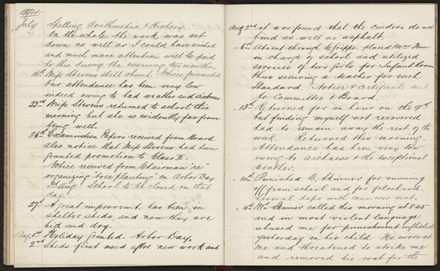 1894
July Spelling Arithmetic & History.
On the whole the work was set
down as well as I could have wished
and much more attention will be paid
to this during the ensuing months.
16th Miss Stevens still absent. Illness forwarded
Our attendance has been very low
indeed owing to bad weather and sickness
23rd Miss Stevens returned to school this
morning but she is evidently far from
being well.
26th Examination Papers received from Board
also notice that Miss Stevens had been
granted promotion to Class E.
Notice received from Chairman re
arranging "tree planting" on Arbor Day
1st Aug. School to be closed on that
day.
27th A great improvement has been in
shelter sheds, and now they are
high and dry.
Aug 1st Holiday granted. Arbor Day.
2nd Sheds first used after new work and
Aug 2nd it was found that the cinders do not
bind as well as asphalt.
6th Absent through la grippe. Placed Mr
in charge of school and utilized
services of two for Infant Room
thus securing a teacher for each
Standard. Notice & Certificate sent
to Committee & Board.
13th Returned for an hour on the 9th
but finding myself not recovered
had to remain away the rest of the
week. Returned this morning.
Attendance has been very low
owing to sickness & the exceptional
weather.
14th Punished D. Skinner for running
off from school and for falsehood.
Several taps with cane on seat.
15th Mr Skinner called this morning at 8.45
and in most violent language
abused me for punishment inflicted
yesterday on his child. He swore at
me and threatened to strike me
and removed his coat for the